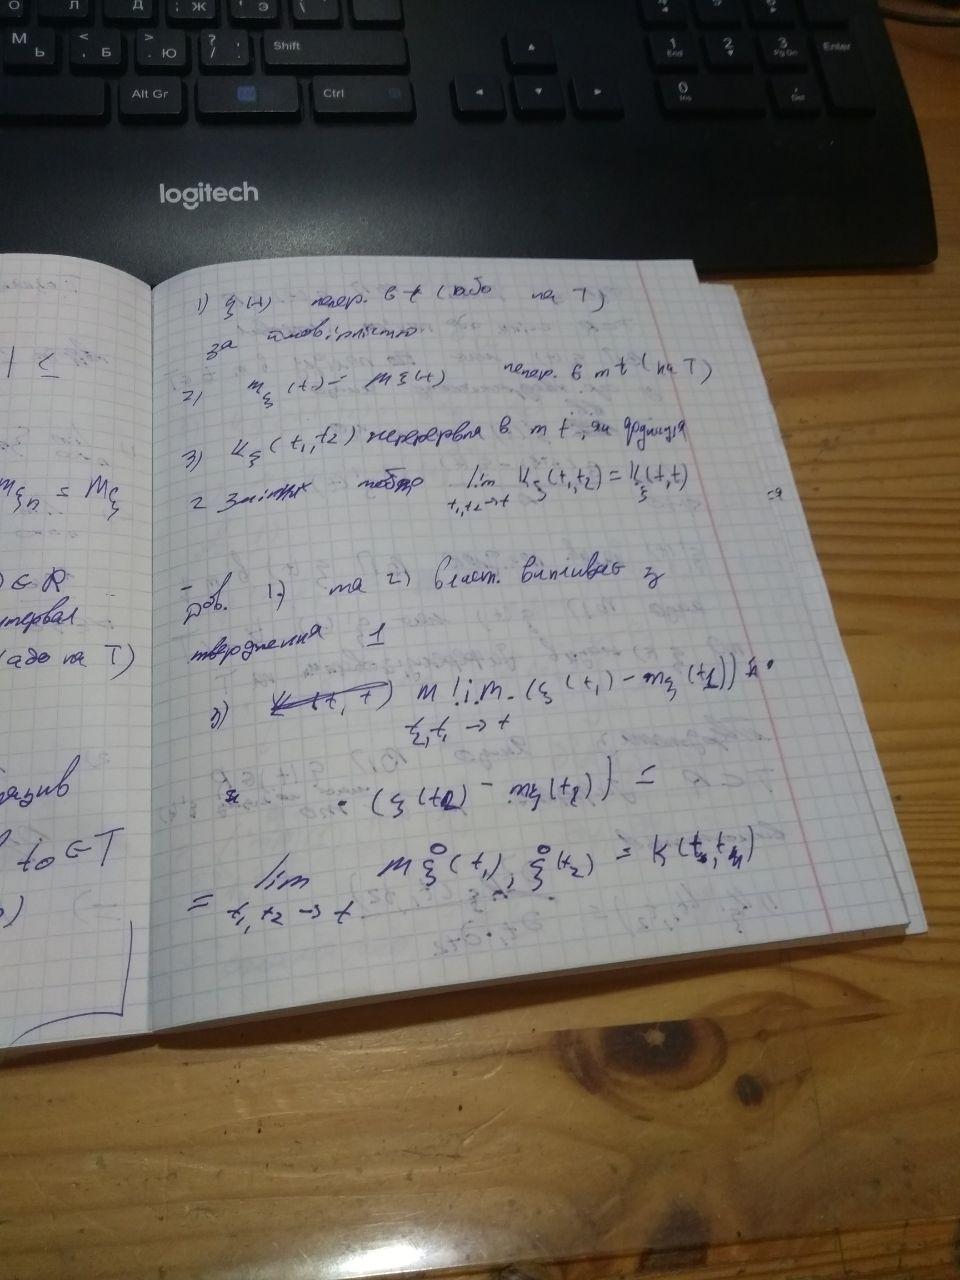 О Л Д Ж Э
М Ь < , Б > . Ю ? / . Shift
Alt Gr Ctrl
1 End 2 3 Pg Dn Enter
0 Ins , Del
logitech
≥ |
Mξn = Mξ
∈ R
нтервал
(або на T)
t0 ∈ T
1) ξ(t) непер. в t (або на T)
за ймовірністю
2) mξ(t) = Mξ(t) непер. в т t (на T)
3) Kξ(t1,t2) неперервна в т t, як функція
2 змінних тобто lim Kξ(t1,t2) = Kξ(t,t)
t1,t2→t
Дов. 1) та 2) власт. випливає з
твердження 1
3) M l.i.m. (ξ(t1) - mξ(t1))
t1,t2 → t
(ξ(t2) - mξ(t2)) =
= lim Mξ(t1), ξ(t2) = K(t,t)
t1,t2 → t